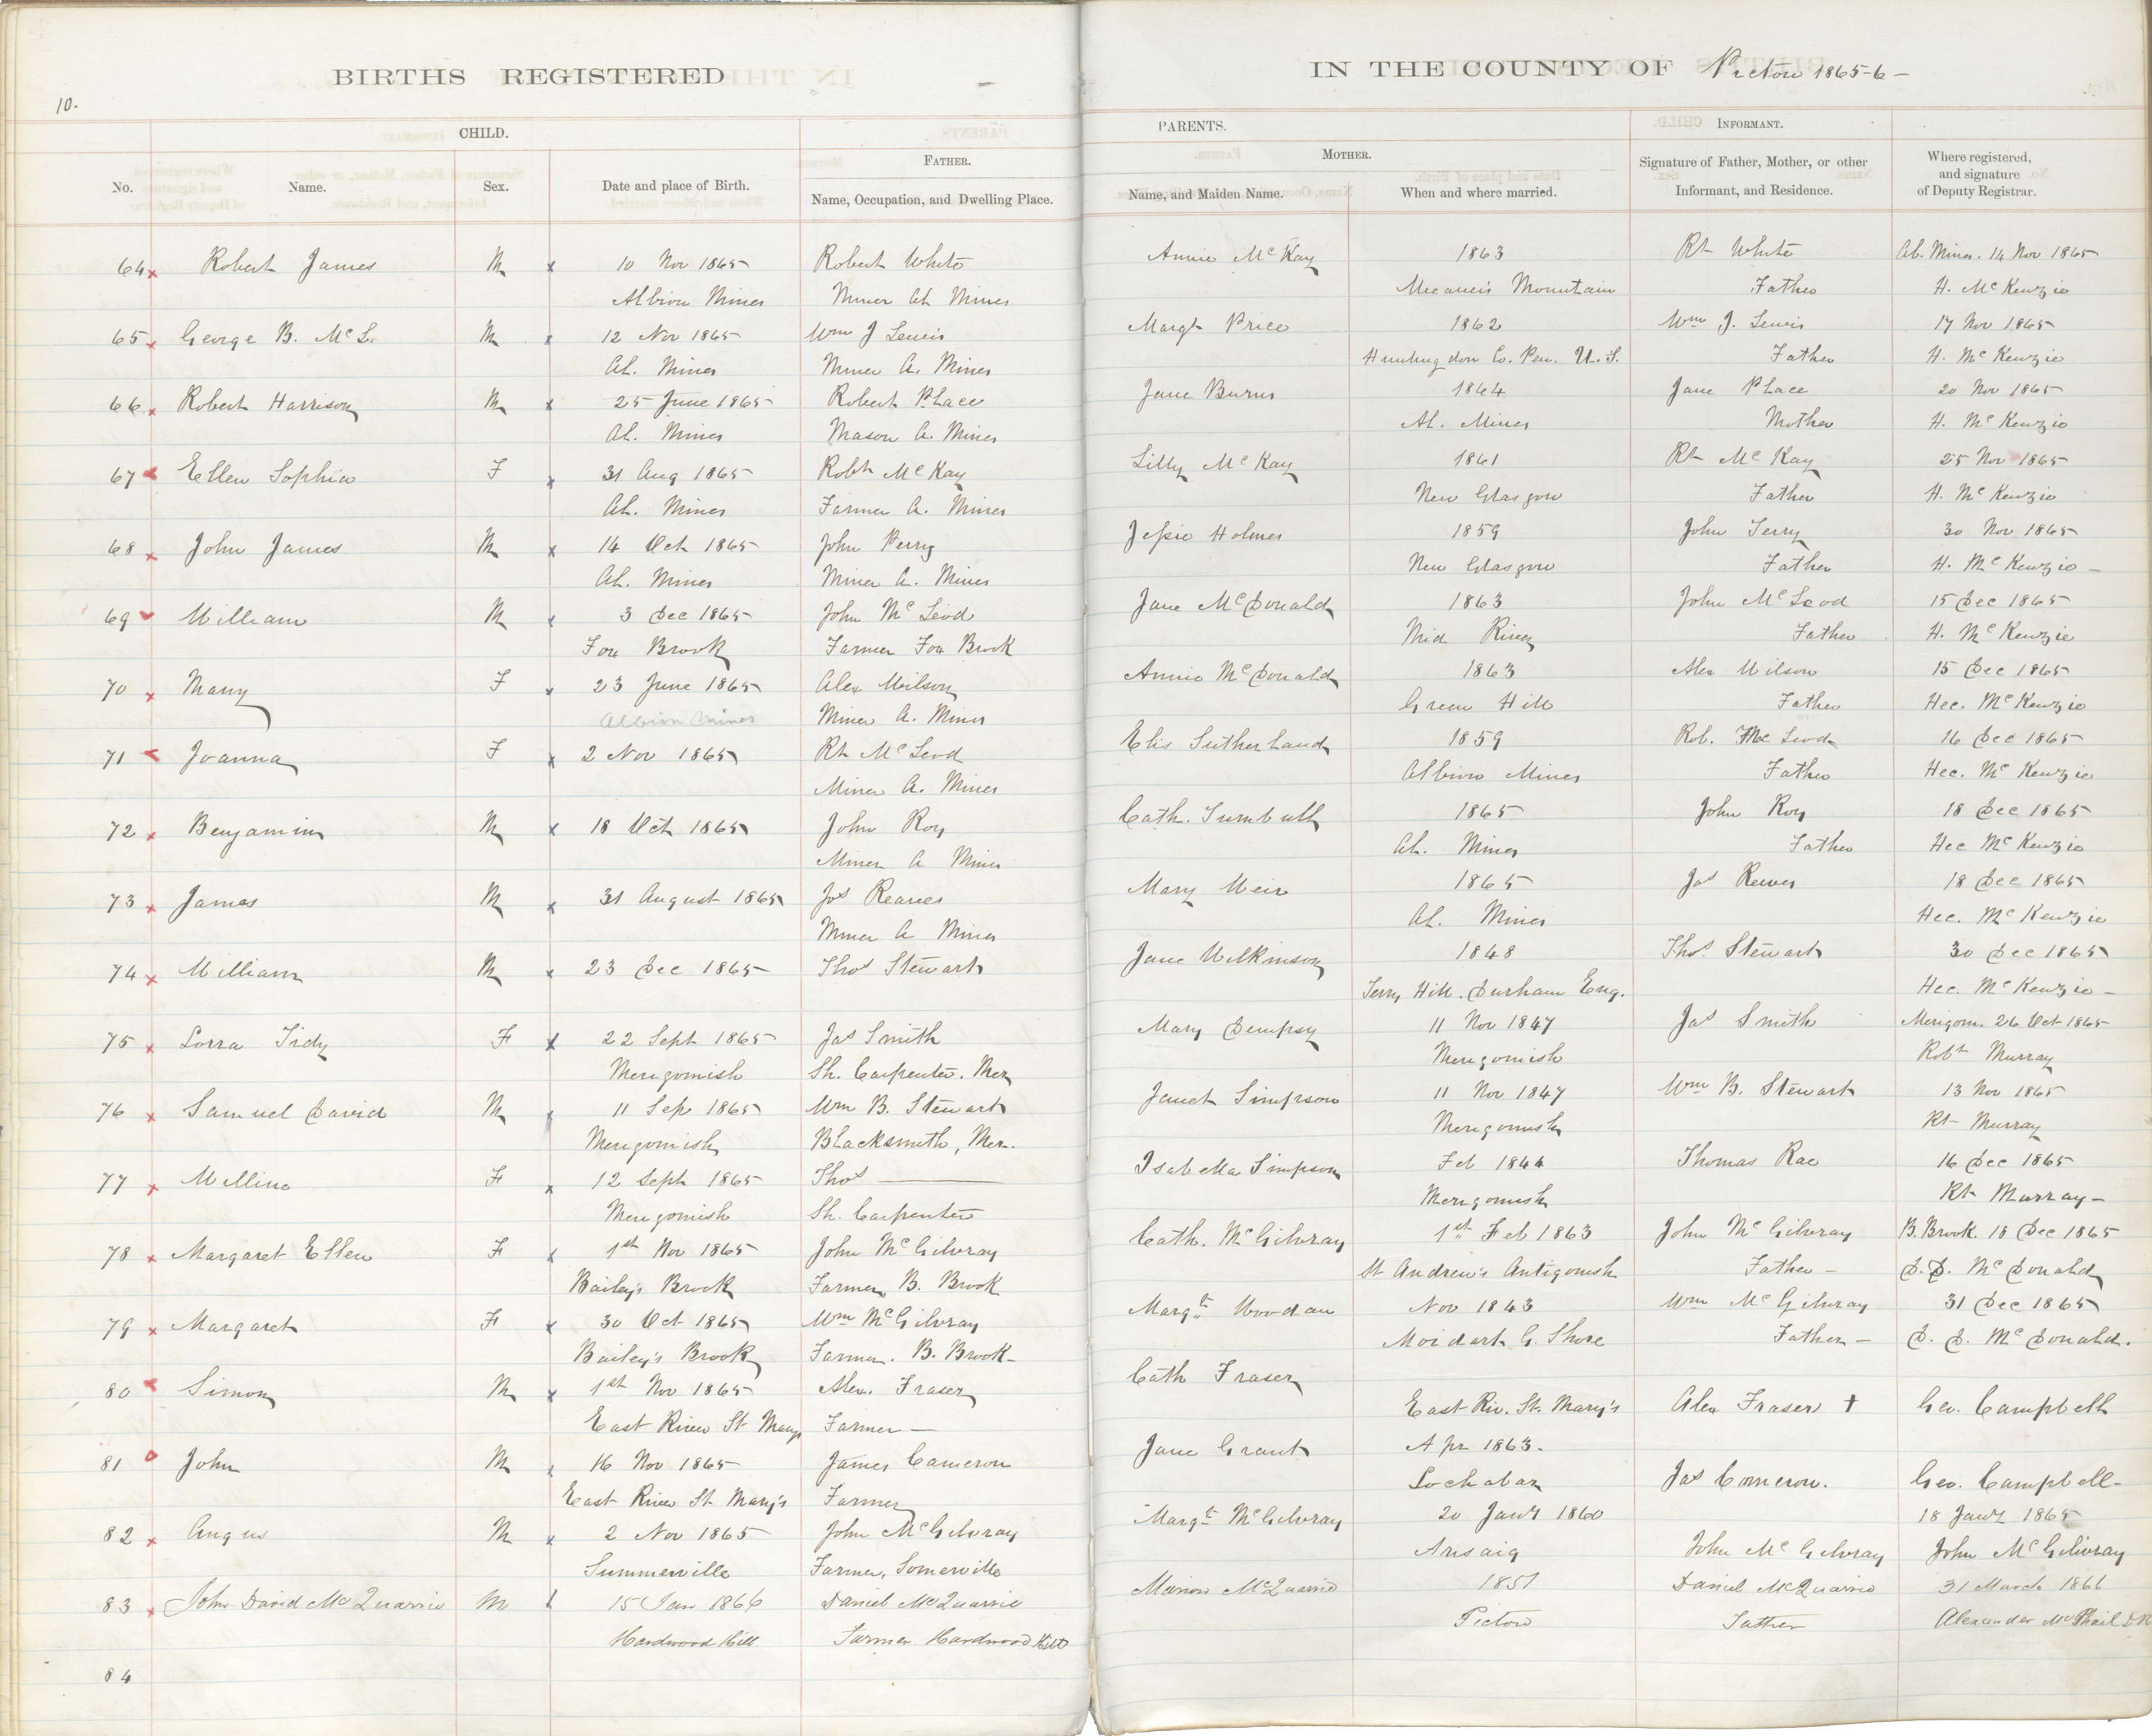 BIRTHS REGISTERED
IN THE COUNTY OF Pictou 1865-6 -
10.
CHILD.
PARENTS.
INFORMANT.
FATHER.
MOTHER.
No.
Name.
Sex.
Date and place of Birth.
Name, Occupation, and Dwelling Place.
Name, and Maiden Name.
When and where married.
Signature of Father, Mother, or other
Informant, and Residence.
Where registered,
and signature
of Deputy Registrar.
64 x Robert James M x 10 Nov 1865 Robert White Annie McKay 1863 Rt White Al. Mines. 14 Nov 1865
Albion Mines Miner Al Mines Mountain Father H. McKenzie
65 x George B. McL. M x 12 Nov 1865 Wm J Lewis Margt Price 1862 Wm J. Lewis 17 Nov 1865
Al. Mines Miner A. Mines Huntingdon Co. Pen. U.S. Father H. McKenzie
66 x Robert Harrison M x 25 June 1865 Robert Place Jane Burns 1864 Jane Place 20 Nov 1865
Al. Mines Mason A. Mines Al. Mines Mother H. McKenzie
67 Ellen Sophia F x 31 Aug 1865 Robt McKay Lilly McKay 1861 Rt McKay 25 Nov 1865
Al. Mines Farmer A. Mines New Glasgow Father H. McKenzie
68 x John James M x 14 Oct 1865 John Perry Jessie Holmes 1859 John Terry 30 Nov 1865
Al. Mines Miner A. Mines New Glasgow Father H. McKenzie -
69 William M x 3 Dec 1865 John McLeod Jane McDonald 1863 John McLeod 15 Dec 1865
Fox Brook Farmer Fox Brook Mid River Father H. McKenzie
70 x Mary F x 23 June 1865 Alex Wilson Annie McDonald 1863 Alex Wilson 15 Dec 1865
Albion Mines Miner A. Mines Green Hill Father Hec. McKenzie
71 Joanna F x 2 Nov 1865 Rt McLeod Elis Sutherland 1859 Rob. McLeod 16 Dec 1865
Miner A. Mines Albion Mines Father Hec. McKenzie
72 x Benjamin M x 18 Oct 1865 John Roy Cath. Turnbull 1865 John Roy 18 Dec 1865
Miner A Mines Al. Mines Father Hec McKenzie
73 x James M x 31 August 1865 Jos Reaves Mary Weir 1865 Jas Reeves 18 Dec 1865
Miner A Mines Al. Mines Hec. McKenzie
74 x William M x 23 Dec 1865 Thos Stewart Jane Wilkinson 1848 Thos. Stewart 30 Dec 1865
Hill. Durham Eng. Hec. McKenzie -
75 x Lorra Tidy F x 22 Sept 1865 Jas Smith Mary Dempsy 11 Nov 1847 Jas Smith Merigom. 26 Oct 1865
Merigomish Sh. Carpenter. Mer Merigomish Robt Murray
76 x Samuel David M x 11 Sep 1865 Wm B. Stewart Janet Simpson 11 Nov 1847 Wm B. Stewart 13 Nov 1865
Merigomish Blacksmith, Mer. Merigomish Rt Murray
77 x Melline F x 12 Sept 1865 Thos — Isabella Simpson Feb 1844 Thomas Rae 16 Dec 1865
Merigomish Sh. Carpenter Merigomish Rt Murray -
78 x Margaret Ellen F x 1st Nov 1865 John McGilvray Cath. McGilvray 1st Feb 1863 John McGilvray B. Brook. 18 Dec 1865
Bailey's Brook Farmer, B. Brook St Andrew's Antigonish Father - D. D. McDonald
79 x Margaret F x 30 Oct 1865 Wm McGilvray Margt Nov 1843 Wm McGilvray 31 Dec 1865
Bailey's Brook Farmer. B. Brook - Moidart G. Shore Father - D. D. McDonald.
80 Simon M x 1st Nov 1865 Alex. Fraser Cath Fraser
East River St Marys Farmer - East Riv. St. Mary's Alex Fraser + Geo. Campbell
81 John M x 16 Nov 1865 James Cameron Jane Grant Apr 1863.
East River St Mary's Farmer Lochabar Jas Comeron. Geo. Campbell -
82 x Angus M x 2 Nov 1865 John McGilvray Margt McGilvray 20 Jany 1860 18 Jany 1865
Summerville Farmer, Somerville Arisaig John McGilvray John McGilivray
83 x John David McQuarrie M 15 Jan 1866 Daniel McQuarrie Marion McQuarrie 1851 Daniel McQuarrie 31 March 1866
Hardwood Hill. Farmer Hardwood Hill Pictou Father Alexander McPhail D R
84